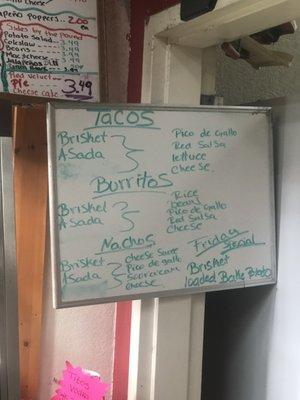 Jalapeño Poppers 2.00
Sides by the Pound
Potato Salad 3.49
Coleslaw 3.49
Beans 3.49
Mac & Cheese
Red Velvet
Pie 3.49
Cheese Cake
Tacos
Brisket
Asada
Pico de Gallo
Red Salsa
lettuce
Cheese
Burritos
Brisket
Asada
Rice
Beans
Pico de Gallo
Red Salsa
Cheese
Nachos
Brisket
Asada
Cheese Sauce
Pico de gallo
Sourcream
Cheese
Friday
Special
Brisket
loaded Bake Potato